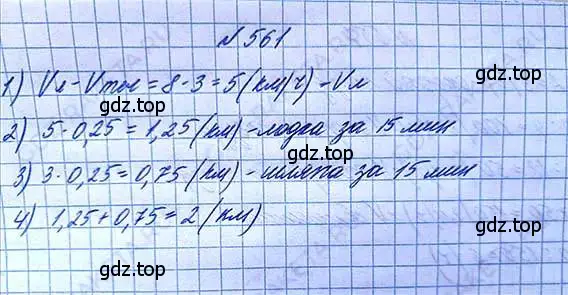 №561
gdz.top
1) Vл - Vтеч = 8 - 3 = 5 (км/ч) - Vл
gdz.top gdz.top
2) 5 · 0,25 = 1,25 (км) - лодка за 15 мин
gdz.top
3) 3 · 0,25 = 0,75 (км) - шляпа за 15 мин
gdz.top gdz.top
4) 1,25 + 0,75 = 2 (км)
gdz.top gdz.top